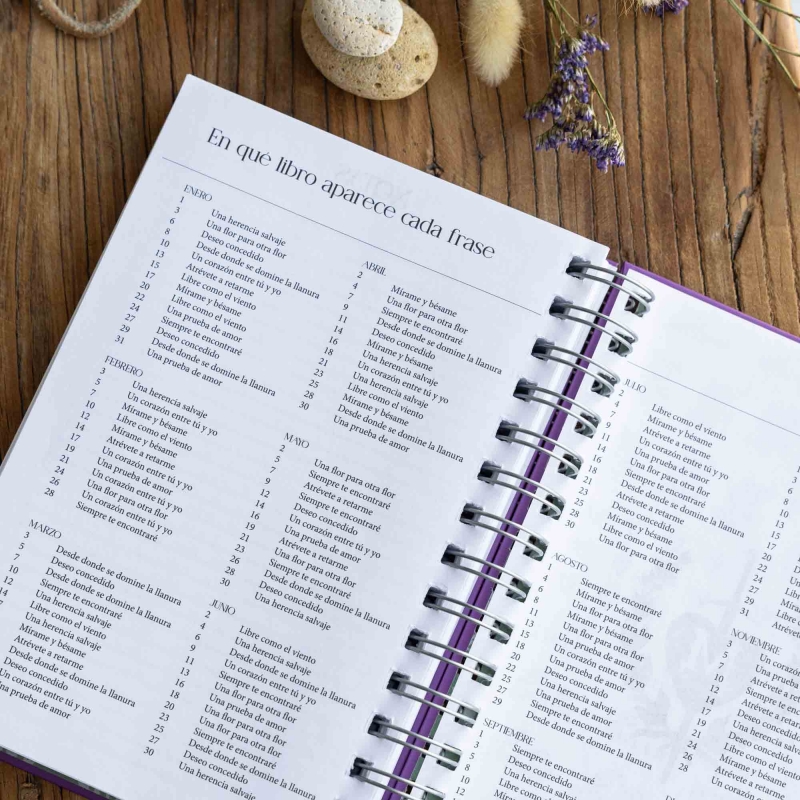 En qué libro aparece cada frase
ENERO
1 Una herencia salvaje
3 Una flor para otra flor
6 Deseo concedido
8 Desde donde se domine la llanura
10 Un corazón entre tú y yo
13 Atrévete a retarme
15 Libre como el viento
17 Mírame y bésame
20 Libre como el viento
22 Una prueba de amor
24 Siempre te encontraré
27 Deseo concedido
29 Desde donde se domine la llanura
31 Una prueba de amor
FEBRERO
3 Una herencia salvaje
5 Un corazón entre tú y yo
7 Mírame y bésame
10 Libre como el viento
12 Mírame y bésame
14 Atrévete a retarme
17 Un corazón entre tú y yo
19 Una prueba de amor
21 Un corazón entre tú y yo
24 Una flor para otra flor
26 Un corazón entre tú y yo
28 Siempre te encontraré
MARZO
3 Desde donde se domine la llanura
5 Deseo concedido
7 Desde donde se domine la llanura
10 Siempre te encontraré
12 Una herencia salvaje
14 Libre como el viento
Una herencia salvaje
Mírame y bésame
Atrévete a retarme
Desde donde se domine la llanura
Deseo concedido
Un corazón entre tú y yo
Una prueba de amor
ABRIL
2 Mírame y bésame
4 Una flor para otra flor
7 Siempre te encontraré
9 Desde donde se domine la llanura
11 Deseo concedido
14 Mírame y bésame
16 Una herencia salvaje
18 Un corazón entre tú y yo
21 Una herencia salvaje
23 Libre como el viento
25 Mírame y bésame
28 Desde donde se domine la llanura
30 Una prueba de amor
MAYO
2 Una flor para otra flor
5 Siempre te encontraré
7 Atrévete a retarme
9 Siempre te encontraré
12 Deseo concedido
14 Un corazón entre tú y yo
16 Una prueba de amor
19 Atrévete a retarme
21 Una flor para otra flor
23 Siempre te encontraré
26 Desde donde se domine la llanura
28 Deseo concedido
30 Una herencia salvaje
JUNIO
2 Libre como el viento
4 Una herencia salvaje
6 Desde donde se domine la llanura
9 Un corazón entre tú y yo
11 Siempre te encontraré
13 Una flor para otra flor
16 Una prueba de amor
18 Una flor para otra flor
20 Una flor para otra flor
23 Siempre te encontraré
25 Desde donde se domine la llanura
27 Deseo concedido
30 Una herencia salvaje
JULIO
Libre como el viento
Mírame y bésame
Atrévete a retarme
Una prueba de amor
Una flor para otra flor
Siempre te encontraré
Desde donde se domine la llanura
Atrévete a retarme
Deseo concedido
Mírame y bésame
Libre como el viento
Una flor para otra flor
AGOSTO
Siempre te encontraré
Mírame y bésame
Una flor para otra flor
Mírame y bésame
Una flor para otra flor
Un corazón entre tú y yo
Una prueba de amor
Deseo concedido
Una herencia salvaje
Una prueba de amor
Siempre te encontraré
Desde donde se domine la llanura
SEPTIEMBRE
1 Siempre te encontraré
3 Deseo concedido
5 Libre como el viento
NOVIEMBRE